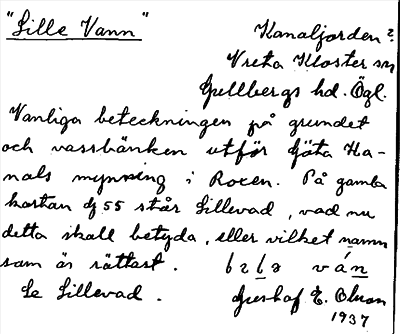 "Lille Vann"
Kanaljorden?
Vreta Kloster sn
Gullbergs hd. Ögl.
Vanliga beteckningen på grundet
och vassbänken utför Göta Ka-
nals mynning i Roxen. På gamla
kartan dj 55 står Lillevad, vad nu
detta skall betyda, eller vilket namn
som är rättast. v án
Se Lillevad. Gustaf E. Olson
1937